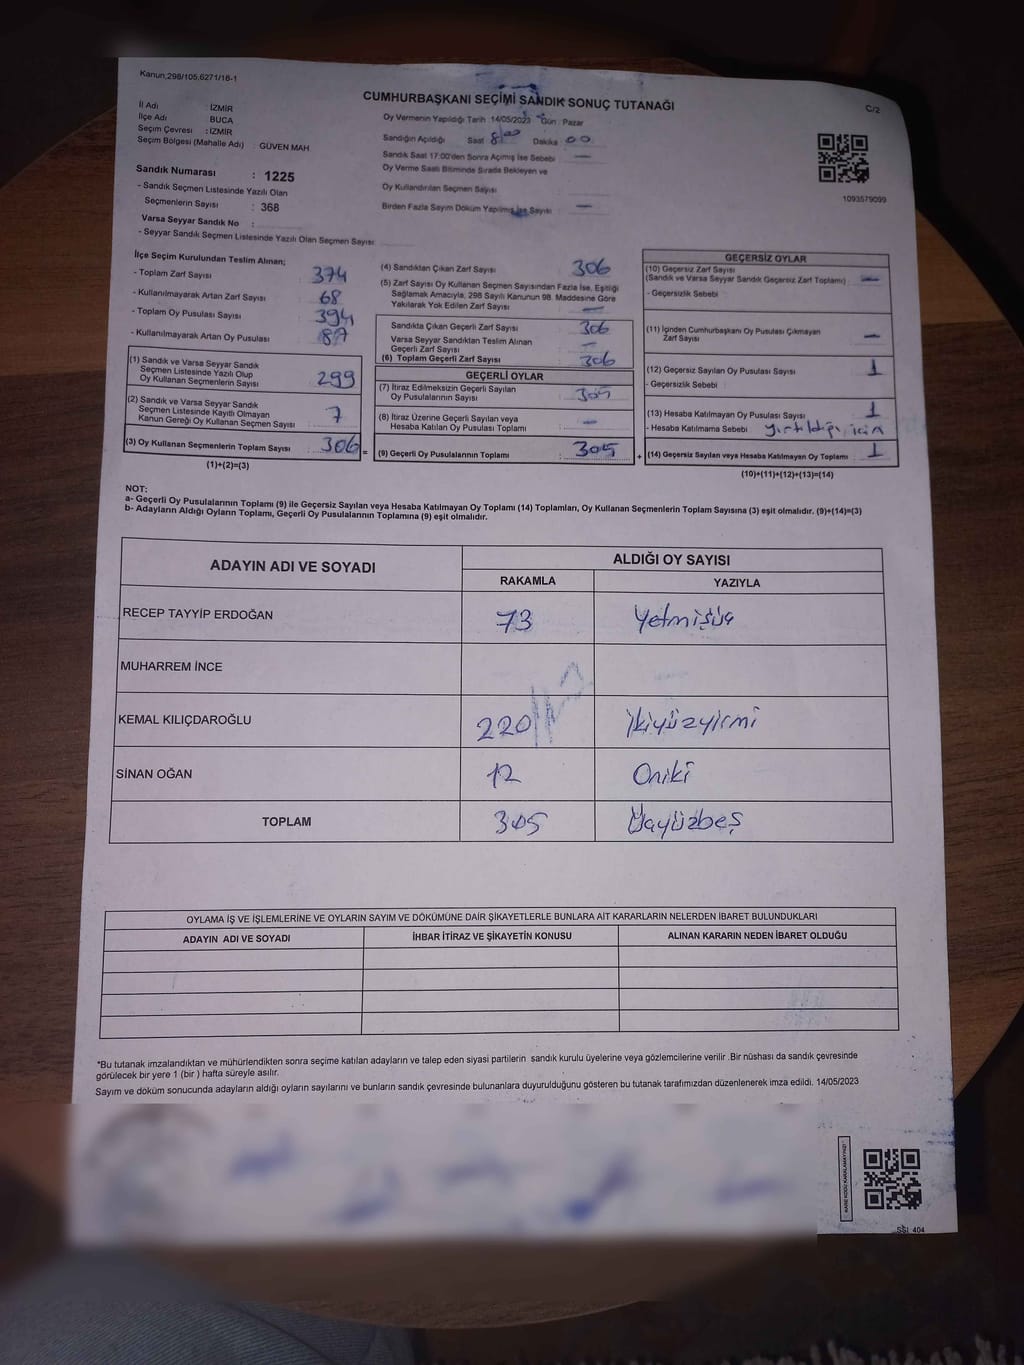 Kanun,298/105,6271/18-1
CUMHURBAŞKANI SEÇİMİ SANDIK SONUÇ TUTANAĞI
C/2
İl Adı : İZMİR
İlçe Adı : BUCA
Seçim Çevresi : İZMİR
Seçim Bölgesi (Mahalle Adı) : GÜVEN MAH
Sandık Numarası : 1225
- Sandık Seçmen Listesinde Yazılı Olan
Seçmenlerin Sayısı : 368
Varsa Seyyar Sandık No :
- Seyyar Sandık Seçmen Listesinde Yazılı Olan Seçmen Sayısı:
Oy Vermenin Yapıldığı Tarih :14/05/2023 Gün : Pazar
Sandığın Açıldığı Saat 8/00 Dakika 00
Sandık Saat 17:00'den Sonra Açılmış İse Sebebi —
Oy Verme Saati Bitiminde Sırada Bekleyen ve
Oy Kullandırılan Seçmen Sayısı
Birden Fazla Sayım Döküm Yapılmış İse Sayısı —
1093579099
İlçe Seçim Kurulundan Teslim Alınan;
- Toplam Zarf Sayısı 374
- Kullanılmayarak Artan Zarf Sayısı 68
- Toplam Oy Pusulası Sayısı 394
- Kullanılmayarak Artan Oy Pusulası 87
(1) Sandık ve Varsa Seyyar Sandık
Seçmen Listesinde Yazılı Olup
Oy Kullanan Seçmenlerin Sayısı 299
(2) Sandık ve Varsa Seyyar Sandık
Seçmen Listesinde Kayıtlı Olmayan
Kanun Gereği Oy Kullanan Seçmen Sayısı 7
(3) Oy Kullanan Seçmenlerin Toplam Sayısı 306 =
(1)+(2)=(3)
(4) Sandıktan Çıkan Zarf Sayısı 306
(5) Zarf Sayısı Oy Kullanan Seçmen Sayısından Fazla İse, Eşitliği
Sağlamak Amacıyla, 298 Sayılı Kanunun 98. Maddesine Göre
Yakılarak Yok Edilen Zarf Sayısı —
Sandıkta Çıkan Geçerli Zarf Sayısı 306
Varsa Seyyar Sandıktan Teslim Alınan
Geçerli Zarf Sayısı —
(6) Toplam Geçerli Zarf Sayısı 306
GEÇERLİ OYLAR
(7) İtiraz Edilmeksizin Geçerli Sayılan
Oy Pusulalarının Sayısı 305
(8) İtiraz Üzerine Geçerli Sayılan veya
Hesaba Katılan Oy Pusulası Toplamı —
(9) Geçerli Oy Pusulalarının Toplamı 305 +
GEÇERSİZ OYLAR
(10) Geçersiz Zarf Sayısı
(Sandık ve Varsa Seyyar Sandık Geçersiz Zarf Toplamı) —
- Geçersizlik Sebebi
(11) İçinden Cumhurbaşkanı Oy Pusulası Çıkmayan
Zarf Sayısı —
(12) Geçersiz Sayılan Oy Pusulası Sayısı 1
- Geçersizlik Sebebi
(13) Hesaba Katılmayan Oy Pusulası Sayısı 1
- Hesaba Katılmama Sebebi yırtıldığı için
(14) Geçersiz Sayılan veya Hesaba Katılmayan Oy Toplamı 1
(10)+(11)+(12)+(13)=(14)
NOT:
a- Geçerli Oy Pusulalarının Toplamı (9) ile Geçersiz Sayılan veya Hesaba Katılmayan Oy Toplamı (14) Toplamları, Oy Kullanan Seçmenlerin Toplam Sayısına (3) eşit olmalıdır. (9)+(14)=(3)
b- Adayların Aldığı Oyların Toplamı, Geçerli Oy Pusulalarının Toplamına (9) eşit olmalıdır.
ADAYIN ADI VE SOYADI ALDIĞI OY SAYISI
RAKAMLA YAZIYLA
RECEP TAYYİP ERDOĞAN 73 Yetmişüç
MUHARREM İNCE
KEMAL KILIÇDAROĞLU 220 İkiyüzyirmi
SİNAN OĞAN 12 Oniki
TOPLAM 305 Üçyüzbeş
OYLAMA İŞ VE İŞLEMLERİNE VE OYLARIN SAYIM VE DÖKÜMÜNE DAİR ŞİKAYETLERLE BUNLARA AİT KARARLARIN NELERDEN İBARET BULUNDUKLARI
ADAYIN ADI VE SOYADI İHBAR İTİRAZ VE ŞİKAYETİN KONUSU ALINAN KARARIN NEDEN İBARET OLDUĞU
*Bu tutanak imzalandıktan ve mühürlendikten sonra seçime katılan adayların ve talep eden siyasi partilerin sandık kurulu üyelerine veya gözlemcilerine verilir .Bir nüshası da sandık çevresinde
görülecek bir yere 1 (bir ) hafta süreyle asılır.
Sayım ve döküm sonucunda adayların aldığı oyların sayılarını ve bunların sandık çevresinde bulunanlara duyurulduğunu gösteren bu tutanak tarafımızdan düzenlenerek imza edildi. 14/05/2023
KARE KODU KARALAMAYINIZ!
SSİ 404